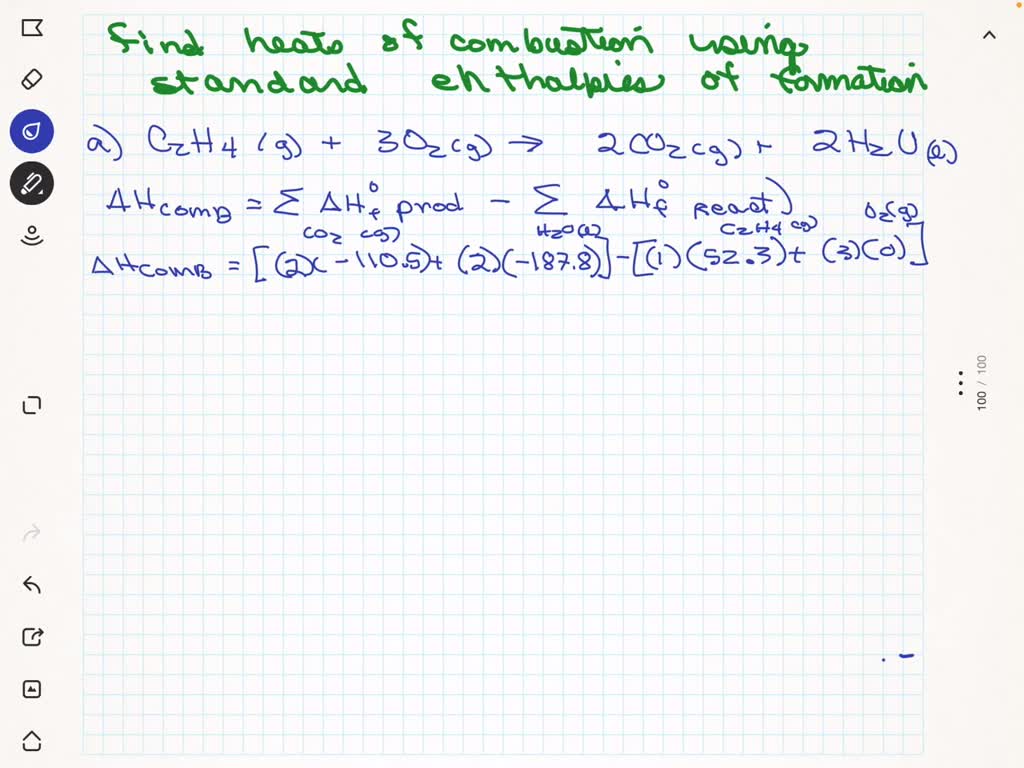 find heats of combustion using
standard enthalpies of formation
a) C₂H₄ (g) + 3O₂(g) → 2CO₂(g) + 2H₂O(l)
ΔHcomb = Σ ΔHf° prod − Σ ΔHf° react)
CO₂ (g) H₂O(l) C₂H₄(g) O₂(g)
ΔHcomb = [(2)(−110.5)+(2)(−187.8)]−[(1)(52.3)+(3)(0)]
100 / 100